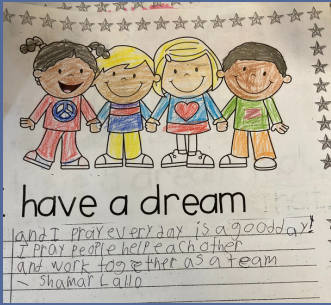 have a dream
and I pray every day is a good day!
I pray people help each other
and work together as a team
~ Shamar Lallo